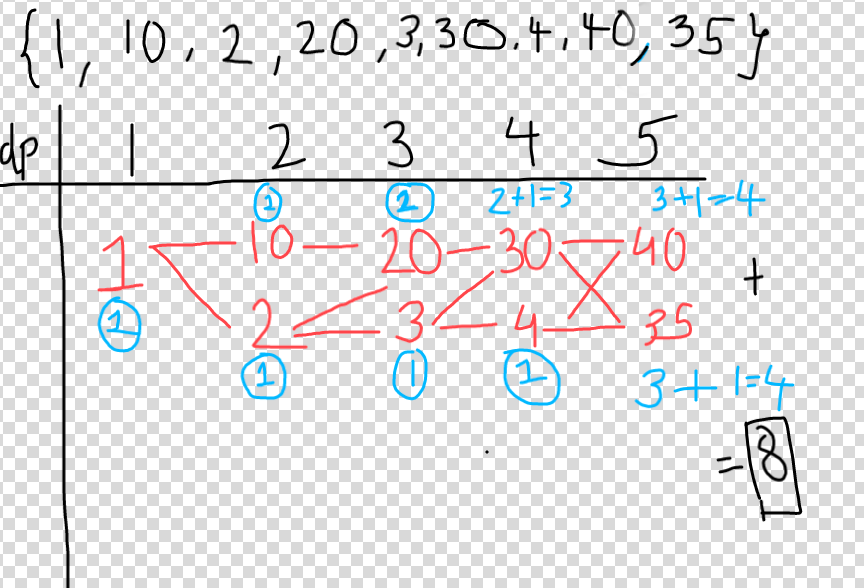 {1, 10, 2, 20, 3, 30. 4, 40, 35}
dp 1 2 3 4 5
1 2 2+1=3 3+1=4
1 10 20 30 40
+
1 2 3 4 35
1 1 1 3+1=4
=8